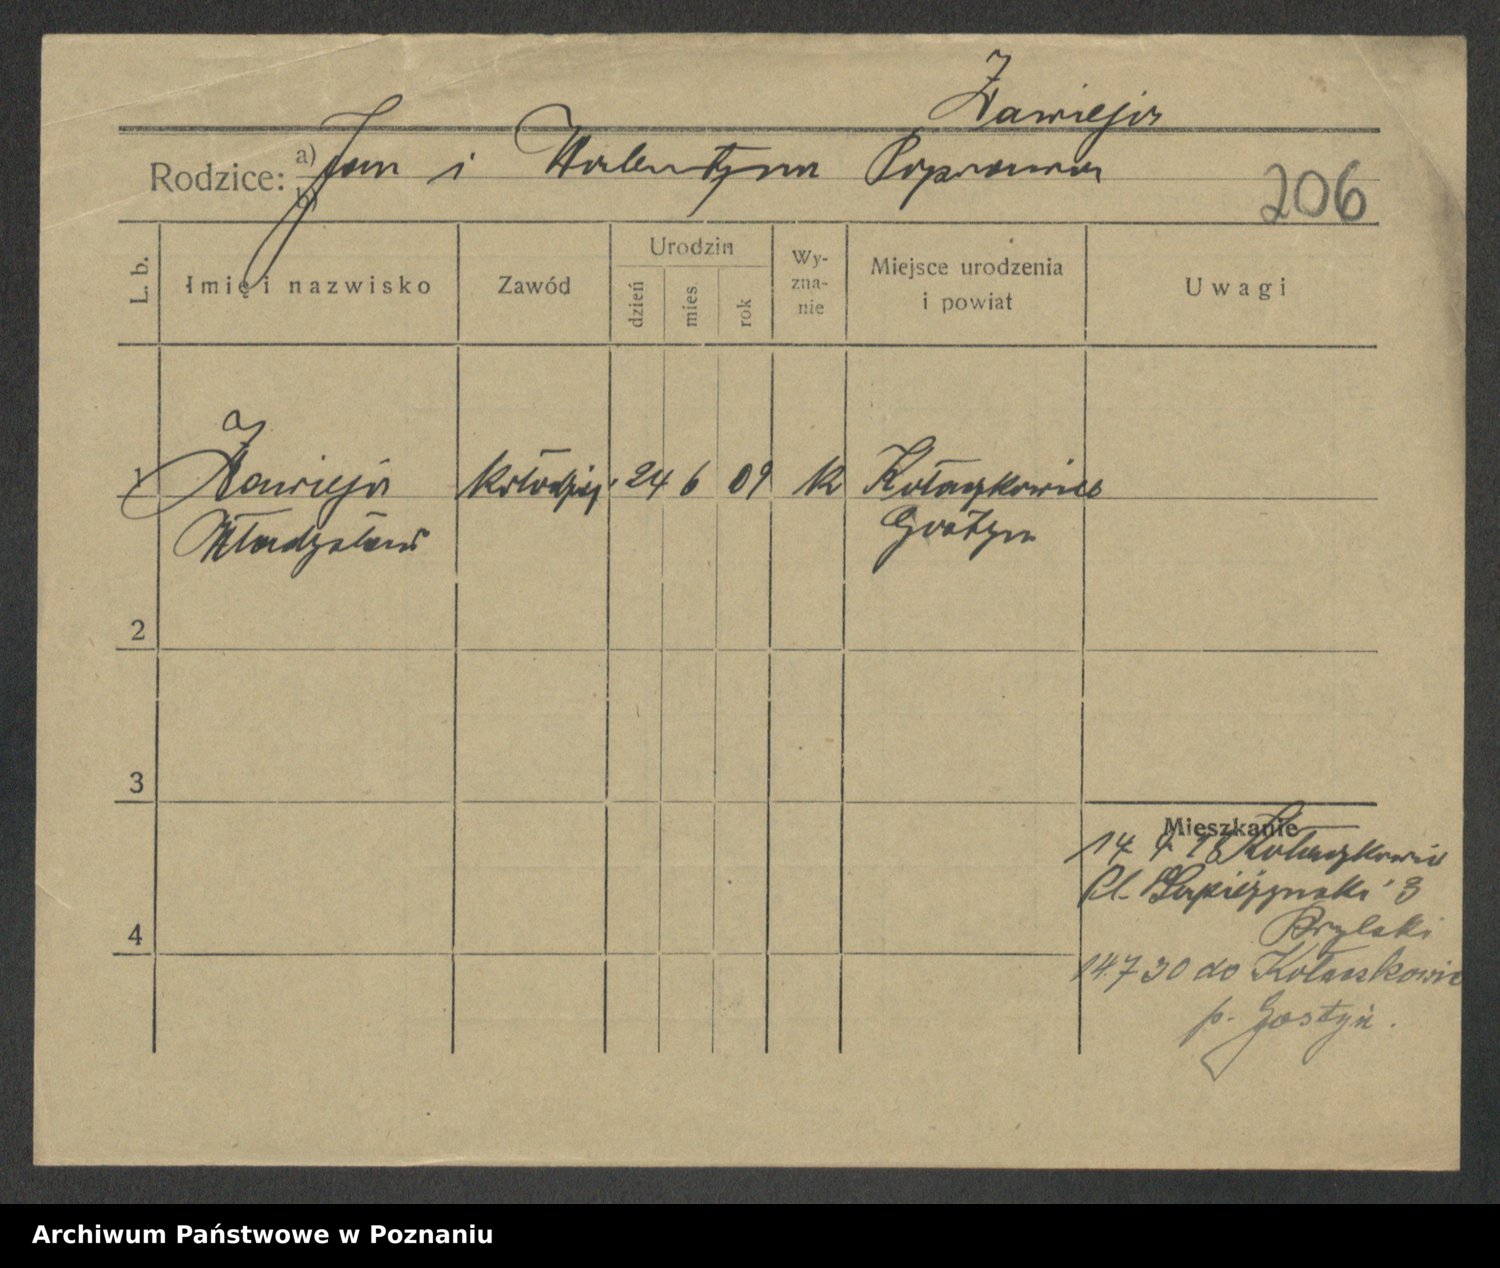 Zawieja
Rodzice: a) Jan i Walentyna Poprawa
b)
206
L. b.
Imię i nazwisko
Zawód
Urodzin
dzień
mies.
rok
Wy-
zna-
nie
Miejsce urodzenia
i powiat
Uwagi
1 Zawieja kołodziej 24 6 09 k Kołaczkowice
Władysław Gostyn
2
3
4
Mieszkanie
14. 9. Kołaczkowic
Pl. Sapieżynski 3
14.7 30 do Kołaczkowic
p. Gostyń.
Archiwum Państwowe w Poznaniu